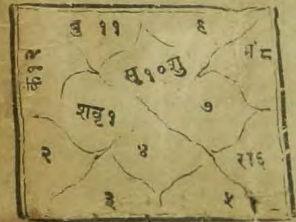 बु ११
६
के १२
सू १० शु
मं ८
शवृ १
७
२
४
रा६
३
५